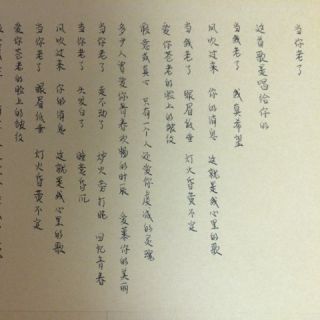 当你老了
这首歌是留给你的
当我老了 我真希望
风吹过来 你的消息 这就是我心里的歌
当我老了 眼眉低垂 灯火昏黄不定
爱你苍老的脸上的皱纹
假意或真心 只有一个人还爱你虔诚的灵魂
多少人曾爱你青春欢畅的时辰 爱慕你的美丽
当你老了 走不动了 炉火旁打盹 回忆青春
当你老了 头发白了 睡意昏沉
风吹过来 你的消息 这就是我心里的歌
当你老了 眼眉低垂 灯火昏黄不定
爱你苍老的脸上的皱纹